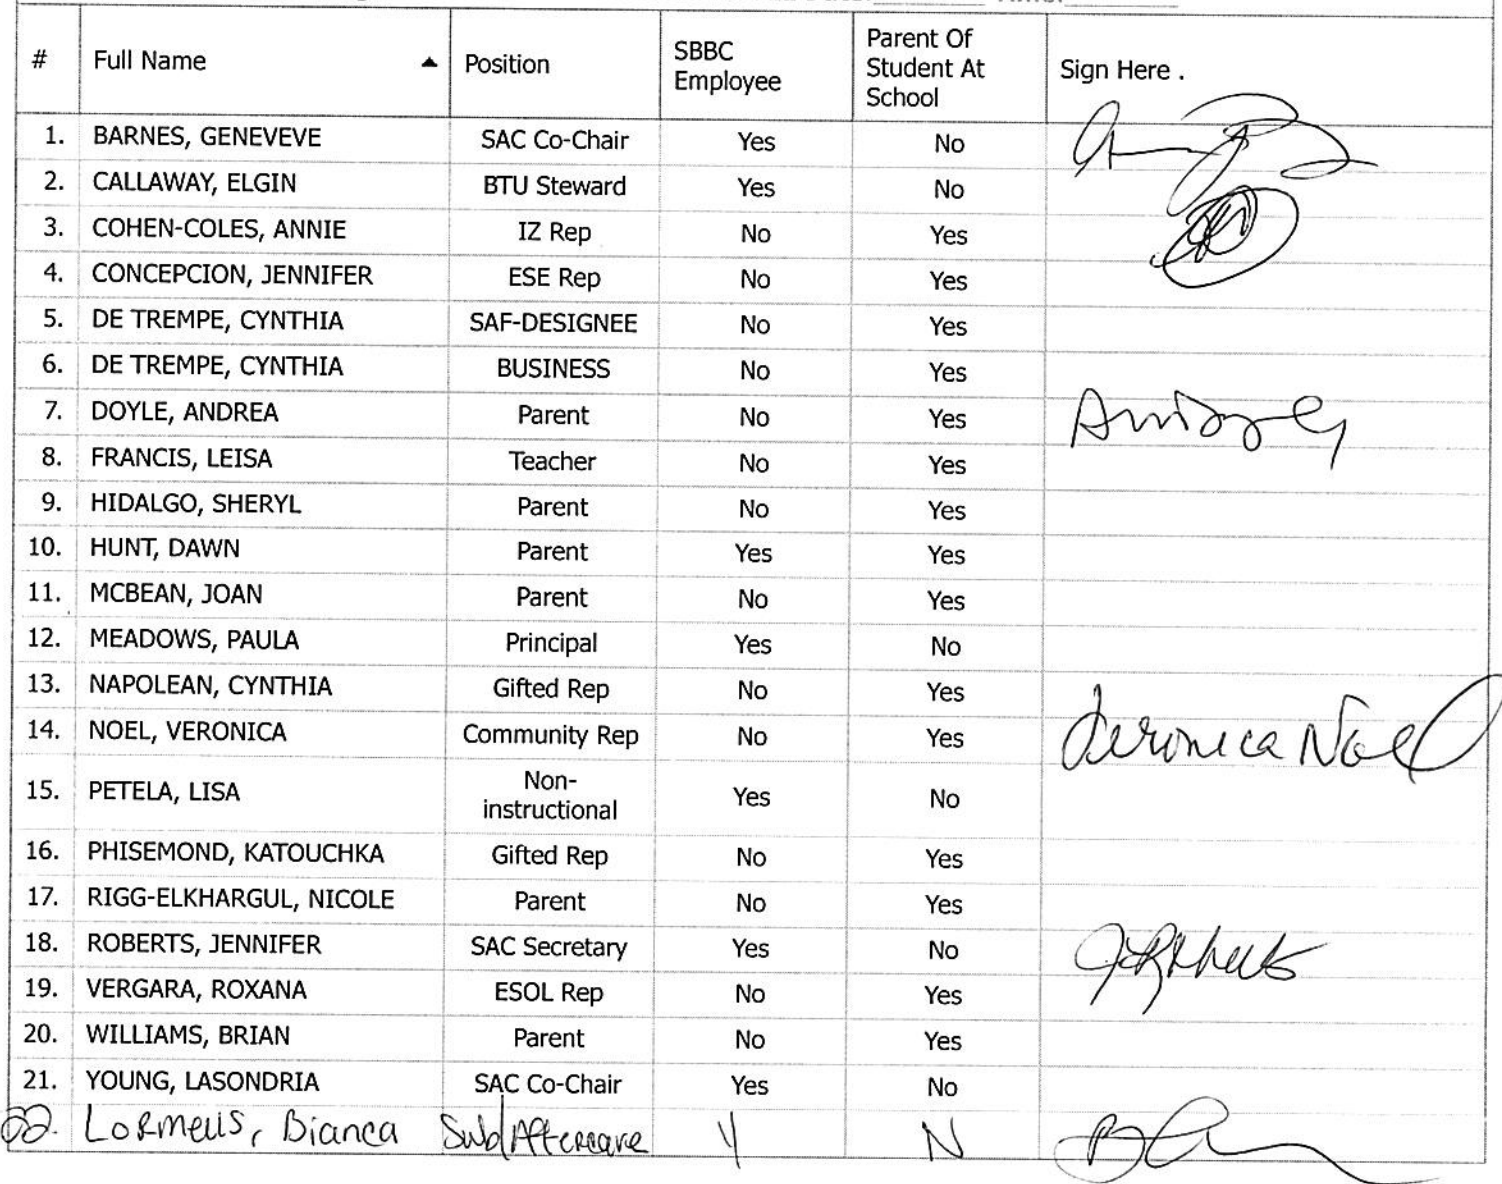 # Full Name ▲ Position SBBC Employee Parent Of Student At School Sign Here .
1. BARNES, GENEVEVE SAC Co-Chair Yes No
2. CALLAWAY, ELGIN BTU Steward Yes No
3. COHEN-COLES, ANNIE IZ Rep No Yes
4. CONCEPCION, JENNIFER ESE Rep No Yes
5. DE TREMPE, CYNTHIA SAF-DESIGNEE No Yes
6. DE TREMPE, CYNTHIA BUSINESS No Yes
7. DOYLE, ANDREA Parent No Yes
8. FRANCIS, LEISA Teacher No Yes
9. HIDALGO, SHERYL Parent No Yes
10. HUNT, DAWN Parent Yes Yes
11. MCBEAN, JOAN Parent No Yes
12. MEADOWS, PAULA Principal Yes No
13. NAPOLEAN, CYNTHIA Gifted Rep No Yes
14. NOEL, VERONICA Community Rep No Yes Veronica Noel
15. PETELA, LISA Non-instructional Yes No
16. PHISEMOND, KATOUCHKA Gifted Rep No Yes
17. RIGG-ELKHARGUL, NICOLE Parent No Yes
18. ROBERTS, JENNIFER SAC Secretary Yes No
19. VERGARA, ROXANA ESOL Rep No Yes
20. WILLIAMS, BRIAN Parent No Yes
21. YOUNG, LASONDRIA SAC Co-Chair Yes No
22. Bianca Sub/Aftercare Y N